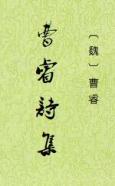 〔魏〕曹睿
曹睿詩集